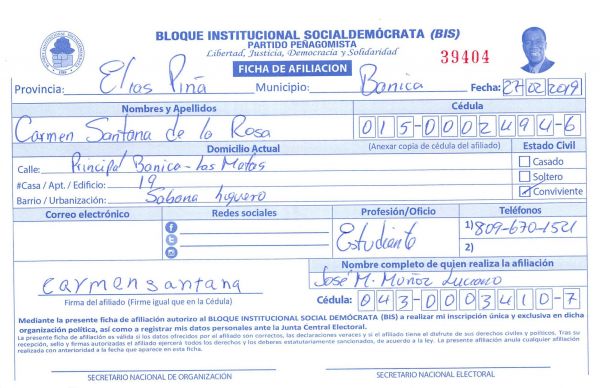 BLOQUE INSTITUCIONAL SOCIALDEMÓCRATA (BIS)
PARTIDO PEÑAGOMISTA
Libertad, Justicia, Democracia y Solidaridad
39404
FICHA DE AFILIACION
Provincia: Elias Piña Municipio: Banica Fecha: 27/02/2019
Nombres y Apellidos Cédula
Carmen Santana de la Rosa 015-0002494-6
Domicilio Actual (Anexar copia de cédula del afiliado) Estado Civil
Calle: Principal Banica-Las Matas Casado
#Casa / Apt. / Edificio: 19 Soltero
Barrio / Urbanización: Sabana higuero Conviviente
Correo electrónico Redes sociales Profesión/Oficio Teléfonos
Estudiante 1) 809-670-1521
2)
Nombre completo de quien realiza la afiliación
carmen santana José M. Muñoz Luciano
Firma del afiliado (Firme igual que en la Cédula) Cédula: 043-0003410-7
Mediante la presente ficha de afiliación autorizo al BLOQUE INSTITUCIONAL SOCIAL DEMÓCRATA (BIS) a realizar mi inscripción única y exclusiva en dicha
organización política, así como a registrar mis datos personales ante la Junta Central Electoral.
La presente ficha de afiliación es válida si los datos ofrecidos por el afiliado son correctos, las declaraciones veraces y si el afiliado tiene el disfrute de sus derechos civiles y políticos. Tras su
recepción, sello y firmas autorizadas el afiliado ejercerá todos los derechos y los deberes estatutariamente sancionados, de acuerdo a la ley. La presente afiliación anula cualquier afiliación
realizada con anterioridad a la fecha que aparece en esta ficha.
SECRETARIO NACIONAL DE ORGANIZACIÓN SECRETARIO NACIONAL ELECTORAL